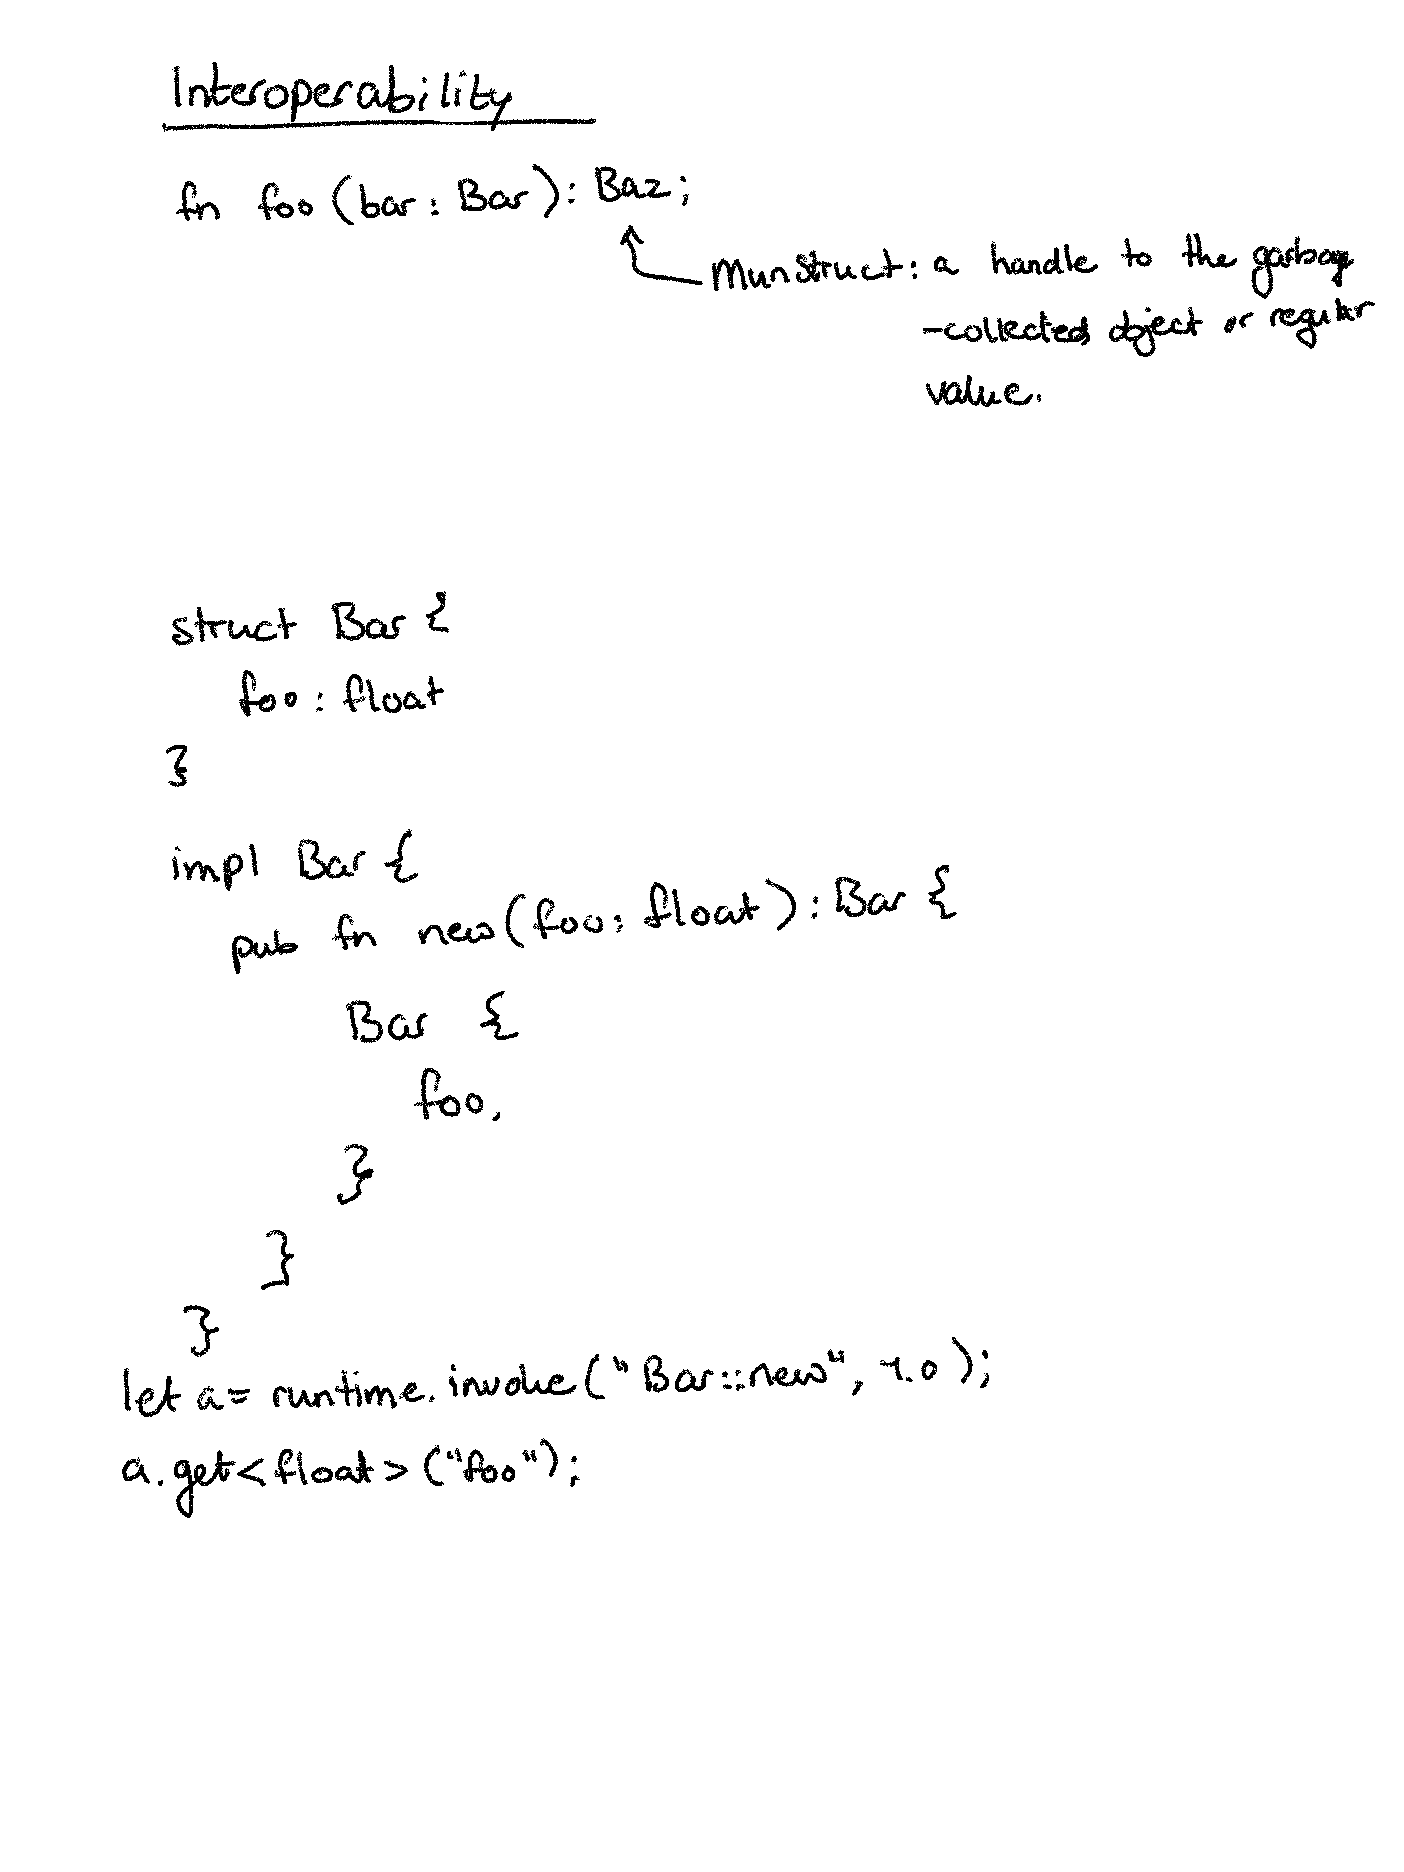 Interoperability
fn foo (bar : Bar) : Baz;
MunStruct : a handle to the garbage
-collected object or regular
value.
struct Bar {
foo : float
}
impl Bar {
pub fn new (foo: float) : Bar {
Bar {
foo,
}
}
}
let a = runtime.invoke("Bar::new", 1.0);
a.get<float>("foo");